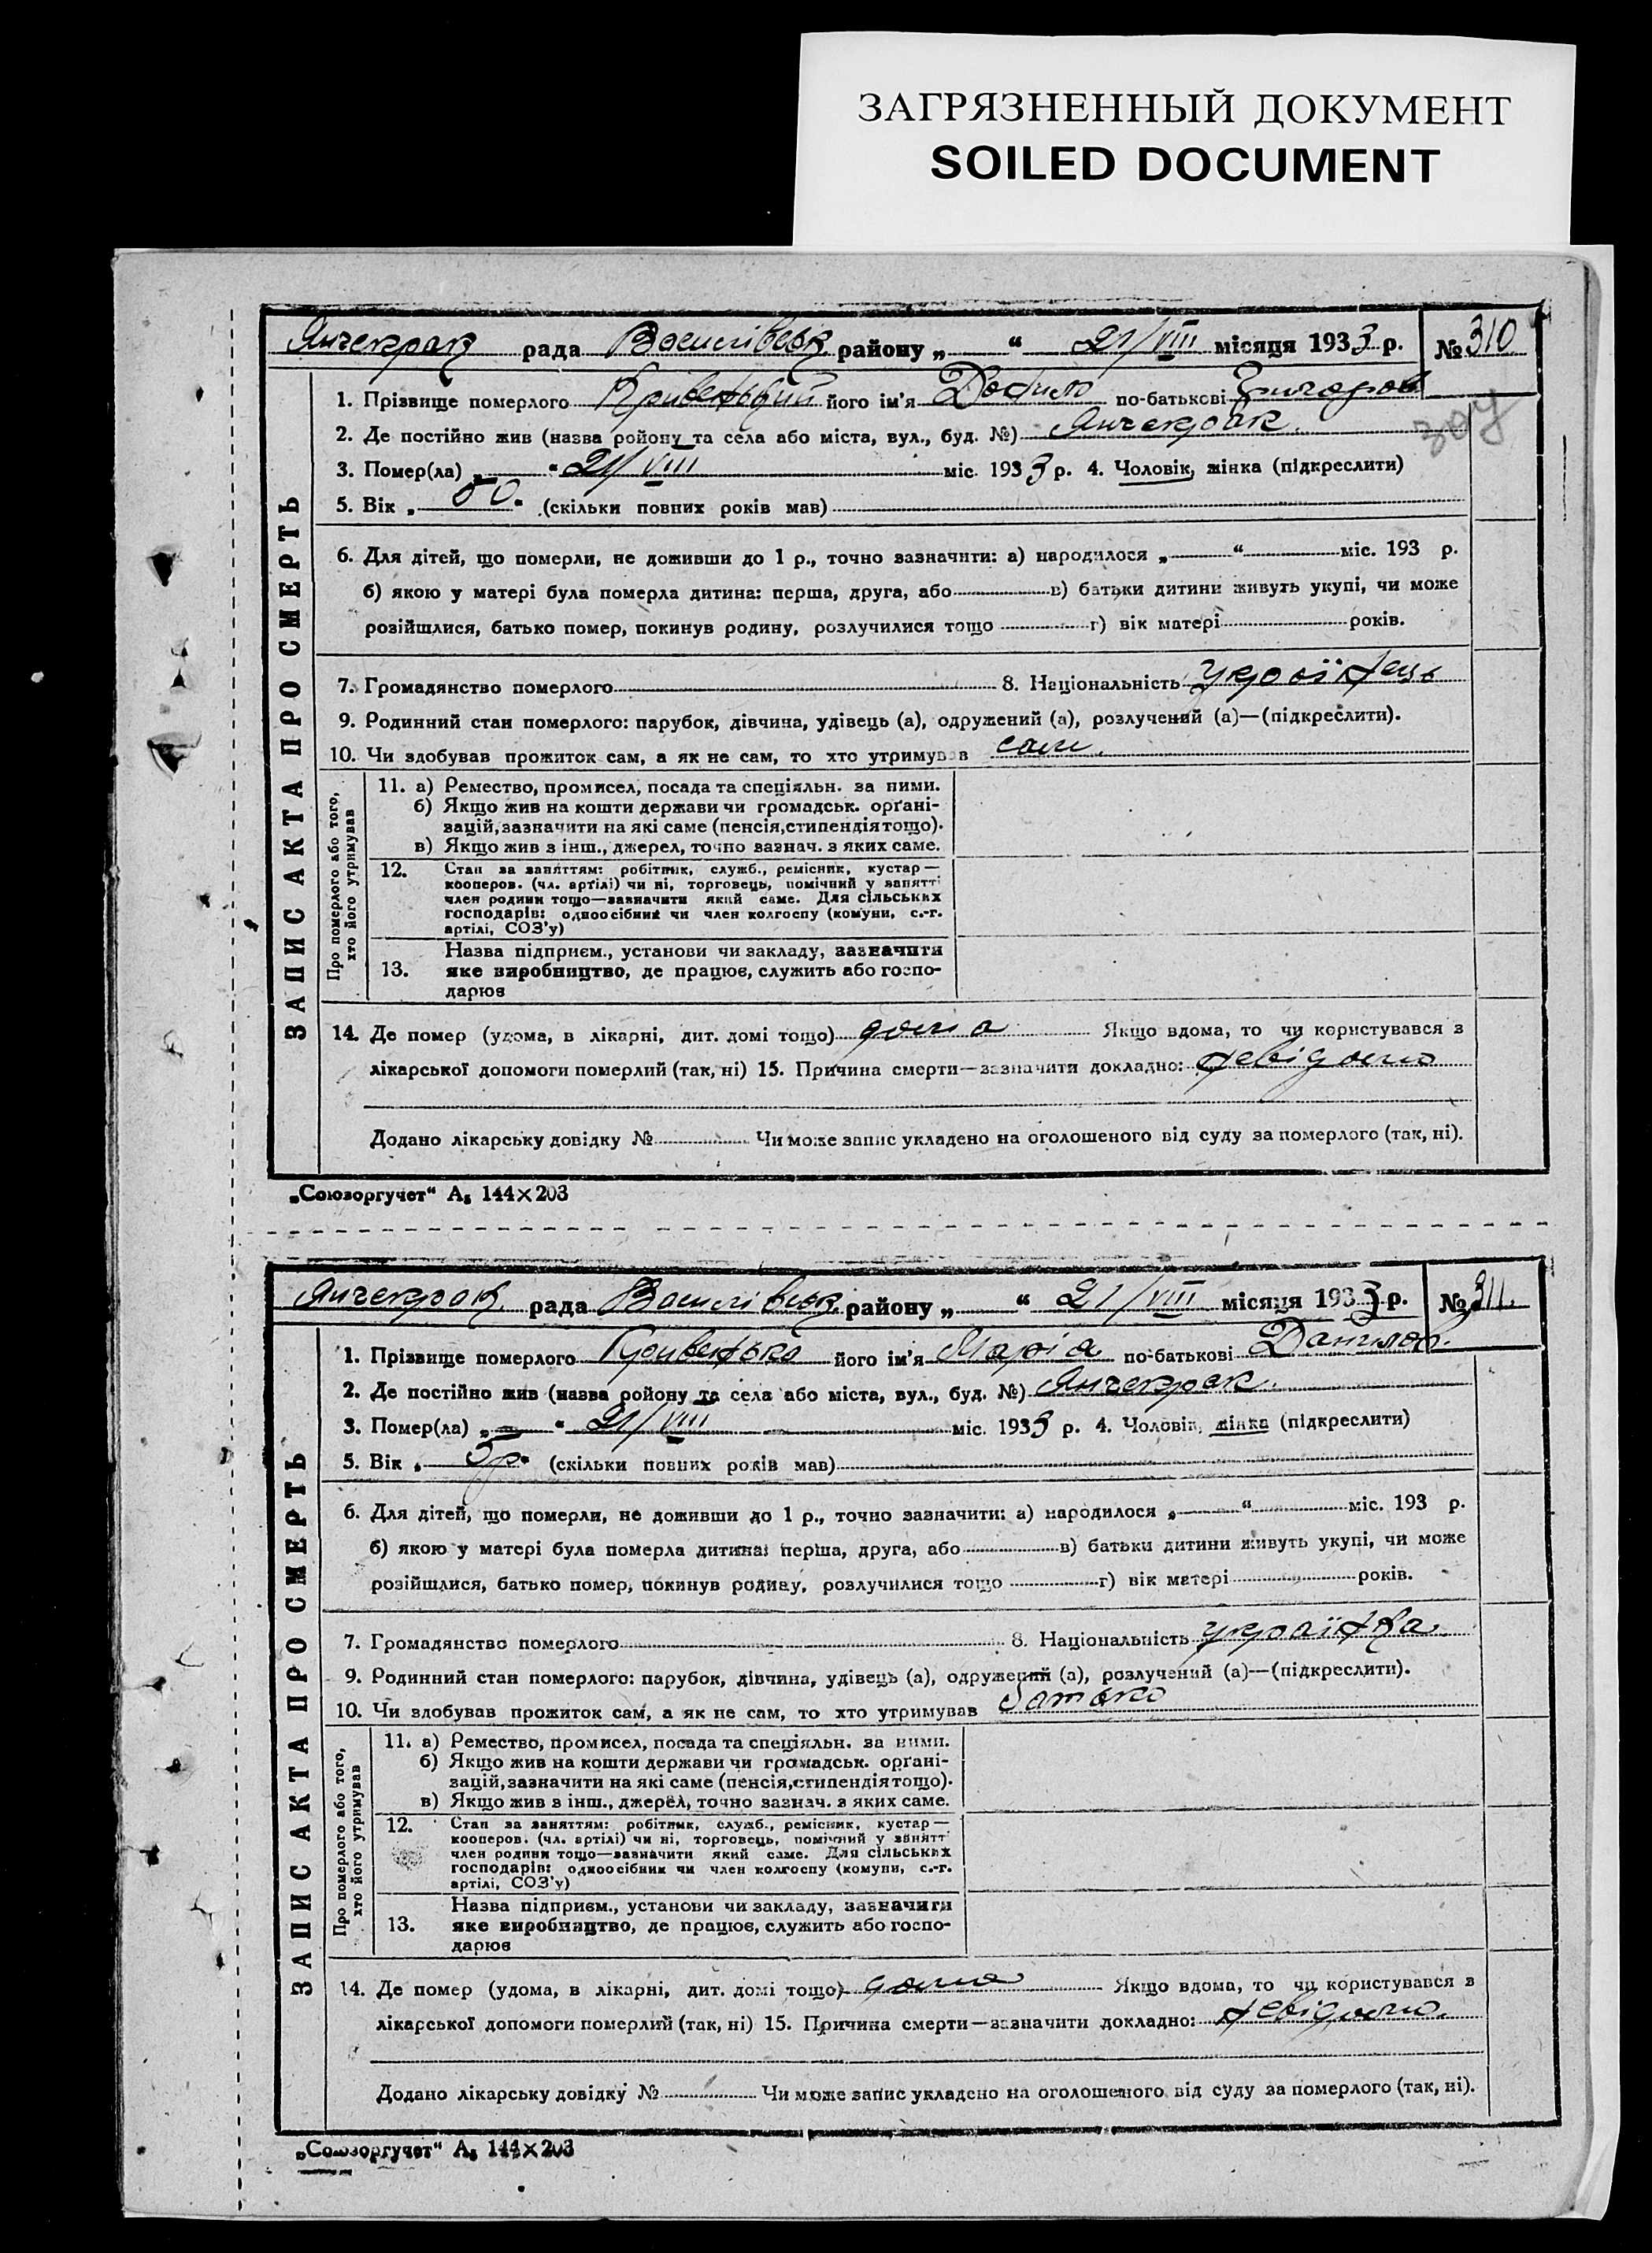 ЗАГРЯЗНЕННЫЙ ДОКУМЕНТ
SOILED DOCUMENT
Янчекрак рада Василівськ району „ “ 21/VIII місяця 1933 р. № 310
1. Прізвище померлого його ім'я по-батькові Григоров
304
2. Де постійно жив (назва ройону та села або міста, вул., буд. №) Янчекрак.
3. Помер(ла) „ “ 21/VIII міс. 1933 р. 4. Чоловік, жінка (підкреслити)
5. Вік „ 50 “ (скільки повних років мав)
6. Для дітей, що померли, не доживши до 1 р., точно зазначити: а) народилося „ “ міс. 193 р.
б) якою у матері була померла дитина: перша, друга, або в) батьки дитини живуть укупі, чи може
розійшлися, батько помер, покинув родину, розлучилися тощо г) вік матері років.
7. Громадянство померлого 8. Національність українець
9. Родинний стан померлого: парубок, дівчина, удівець (а), одружений (а), розлучений (а)—(підкреслити).
10. Чи здобував прожиток сам, а як не сам, то хто утримував сам.
ЗАПИС АКТА ПРО СМЕРТЬ
Про померлого або того, хто його утримував
11. а) Ремество, промисел, посада та спеціяльн. за ними.
б) Якщо жив на кошти держави чи громадськ. орґані-
зацій, зазначити на які саме (пенсія, стипендія тощо).
в) Якщо жив з інш., джерел, точно зазнач. з яких саме.
12. Стан за заняттям: робітник, служб., ремісник, кустар—
кооперов. (чл. артілі) чи ні, торговець, помічний у занятті
член родини тощо—зазначити який саме. Для сільських
господарів: одноосібний чи член колгоспу (комуни, с.-г.
артілі, СОЗ'у)
13. Назва підприєм., установи чи закладу, зазначити
яке виробництво, де працює, служить або госпо-
дарює
14. Де помер (удома, в лікарні, дит. домі тощо) дома Якщо вдома, то чи користувався з
лікарської допомоги померлий (так, ні) 15. Причина смерти—зазначити докладно: невідомо
Додано лікарську довідку № Чи може запис укладено на оголошеного від суду за померлого (так, ні).
„Союзоргучет“ А₅ 144×203
Янчекрак рада Василівськ. району „ “ 21/VIII місяця 1933 р. № 311.
1. Прізвище померлого його ім'я Марія по-батькові Данилов.
2. Де постійно жив (назва ройону та села або міста, вул., буд. №) Янчекрак.
3. Помер(ла) „ “ 21/VIII міс. 1933 р. 4. Чоловік, жінка (підкреслити)
5. Вік „ 5р. “ (скільки повних років мав)
6. Для дітей, що померли, не доживши до 1 р., точно зазначити: а) народилося „ “ міс. 193 р.
б) якою у матері була померла дитина: перша, друга, або в) батьки дитини живуть укупі, чи може
розійшлися, батько помер, покинув родину, розлучилися тощо г) вік матері років.
7. Громадянство померлого 8. Національність українка
9. Родинний стан померлого: парубок, дівчина, удівець (а), одружений (а), розлучений (а)—(підкреслити).
10. Чи здобував прожиток сам, а як не сам, то хто утримував батько
ЗАПИС АКТА ПРО СМЕРТЬ
Про померлого або того, хто його утримував
11. а) Ремество, промисел, посада та спеціяльн. за ними.
б) Якщо жив на кошти держави чи громадськ. орґані-
зацій, зазначити на які саме (пенсія, стипендія тощо).
в) Якщо жив з інш., джерел, точно зазнач. з яких саме.
12. Стан за заняттям: робітник, служб., ремісник, кустар—
кооперов. (чл. артілі) чи ні, торговець, помічний у занятті
член родини тощо—зазначити який саме. Для сільських
господарів: одноосібник чи член колгоспу (комуни, с.-г.
артілі, СОЗ'у)
13. Назва підприєм., установи чи закладу, зазначити
яке виробництво, де працює, служить або госпо-
дарює
14. Де помер (удома, в лікарні, дит. домі тощо) дома Якщо вдома, то чи користувався з
лікарської допомоги померлий (так, ні) 15. Причина смерти—зазначити докладно: невідомо.
Додано лікарську довідку № Чи може запис укладено на оголошеного від суду за померлого (так, ні).
„Союзоргучет“ А₅ 144×203